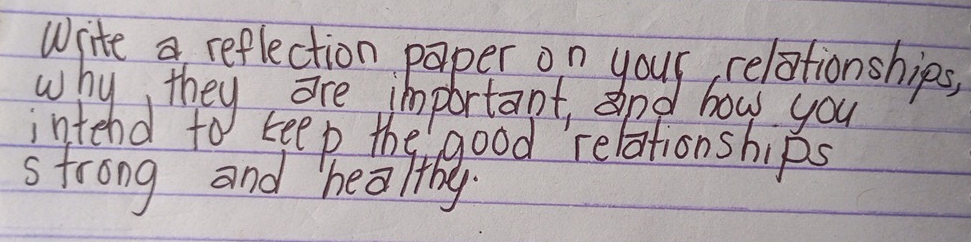 Write a reflection paper on your relationships,
why they are important, and how you
intend to keep the good relationships
strong and healthy.